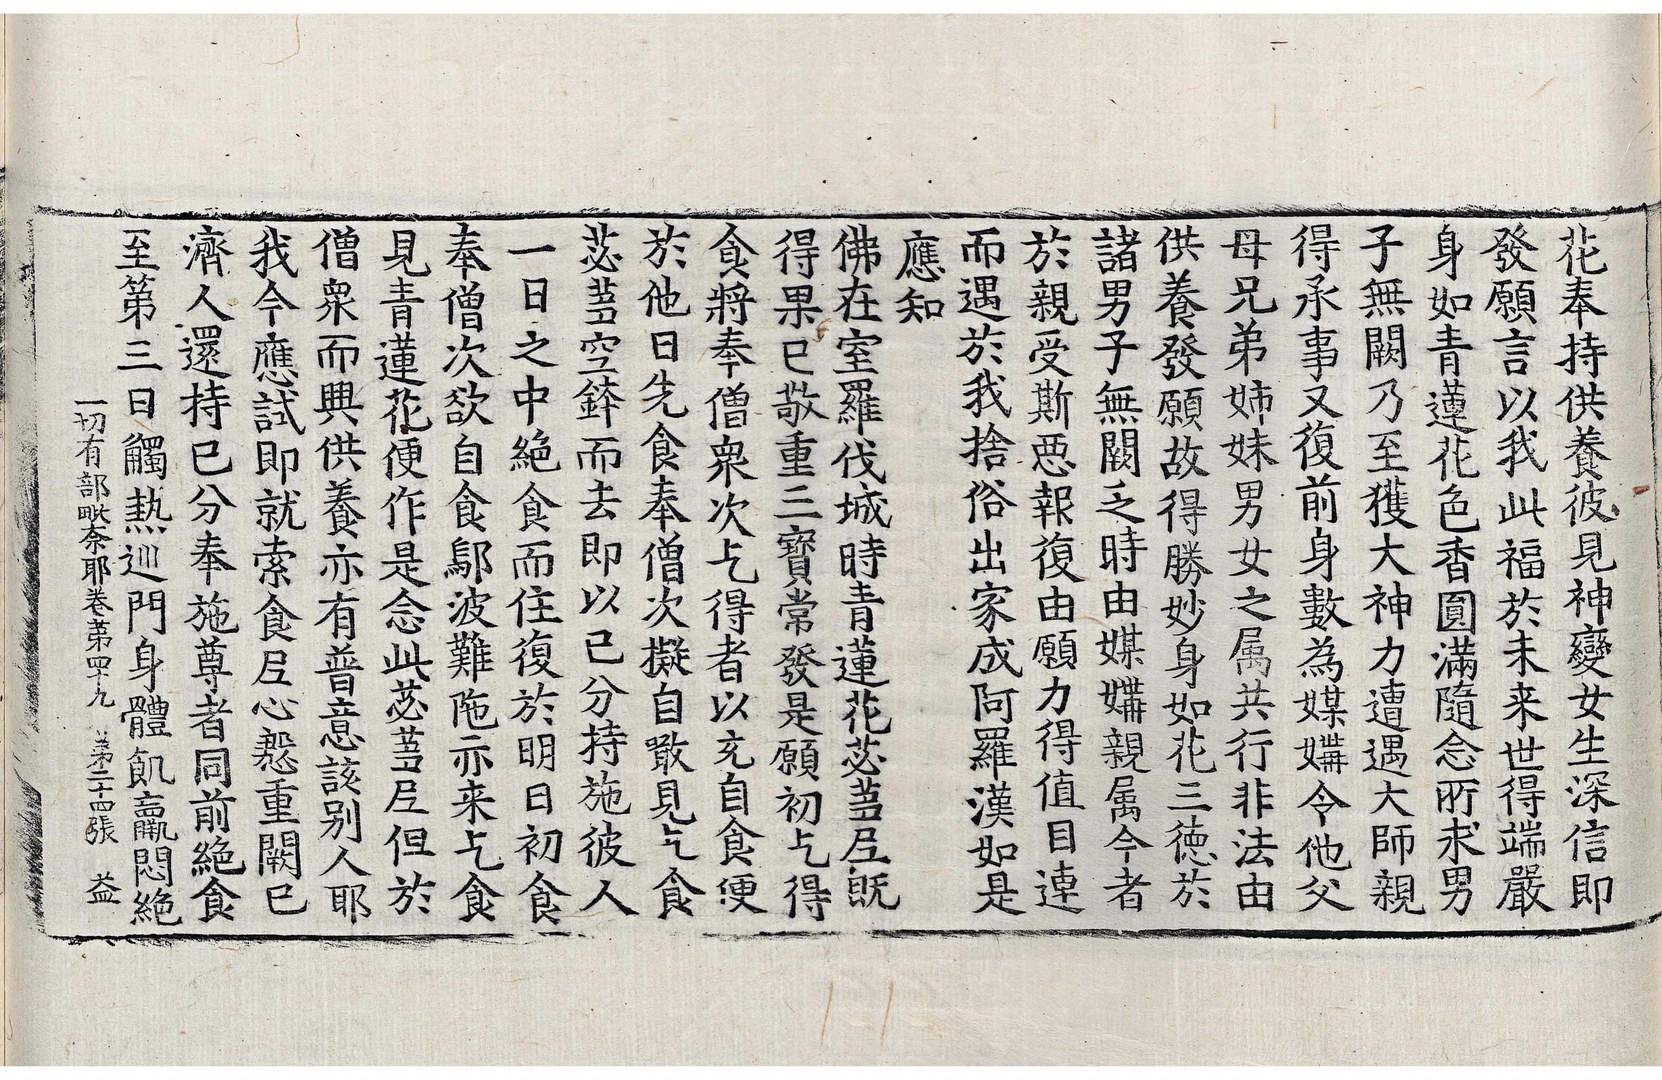 花奉持供養彼見神變女生深信即
發願言以我此福於未来世得端嚴
身如青蓮花色香圓滿隨念所求男
子無闕乃至獲大神力遭遇大師親
得承事又復前身數為媒媾令他父
母兄弟姉妹男女之属共行非法由
供養發願故得勝妙身如花三德於
諸男子無闕乏時由媒媾親属今者
於親受斯悪報復由願力得值目連
而遇於我捨俗出家成阿羅漢如是
應知
佛在室羅伐城時青蓮花苾蒭尼既
得果已敬重三寶常發是願初乞得
食將奉僧衆次乞得者以充自食便
於他日先食奉僧次擬自歠見乞食
苾蒭空鉢而去即以已分持施彼人
一日之中絶食而住復於明日初食
奉僧次欲自食鄔波難陁亦来乞食
見青蓮花便作是念此苾蒭尼但於
僧衆而興供養亦有普意該别人耶
我今應試即就索食尼心慇重闕已
濟人還持已分奉施尊者同前絶食
至第三日觸熱巡門身體飢羸悶絶
一切有部毗奈耶卷第四十九 第二十四張 益